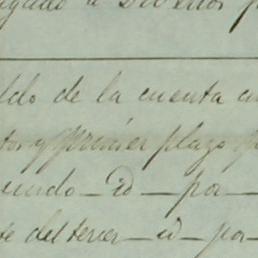 á Diversos
ldo de la cuenta
tor y primer plazo
undo _ id _ por _
te del tercer _ id _ por _